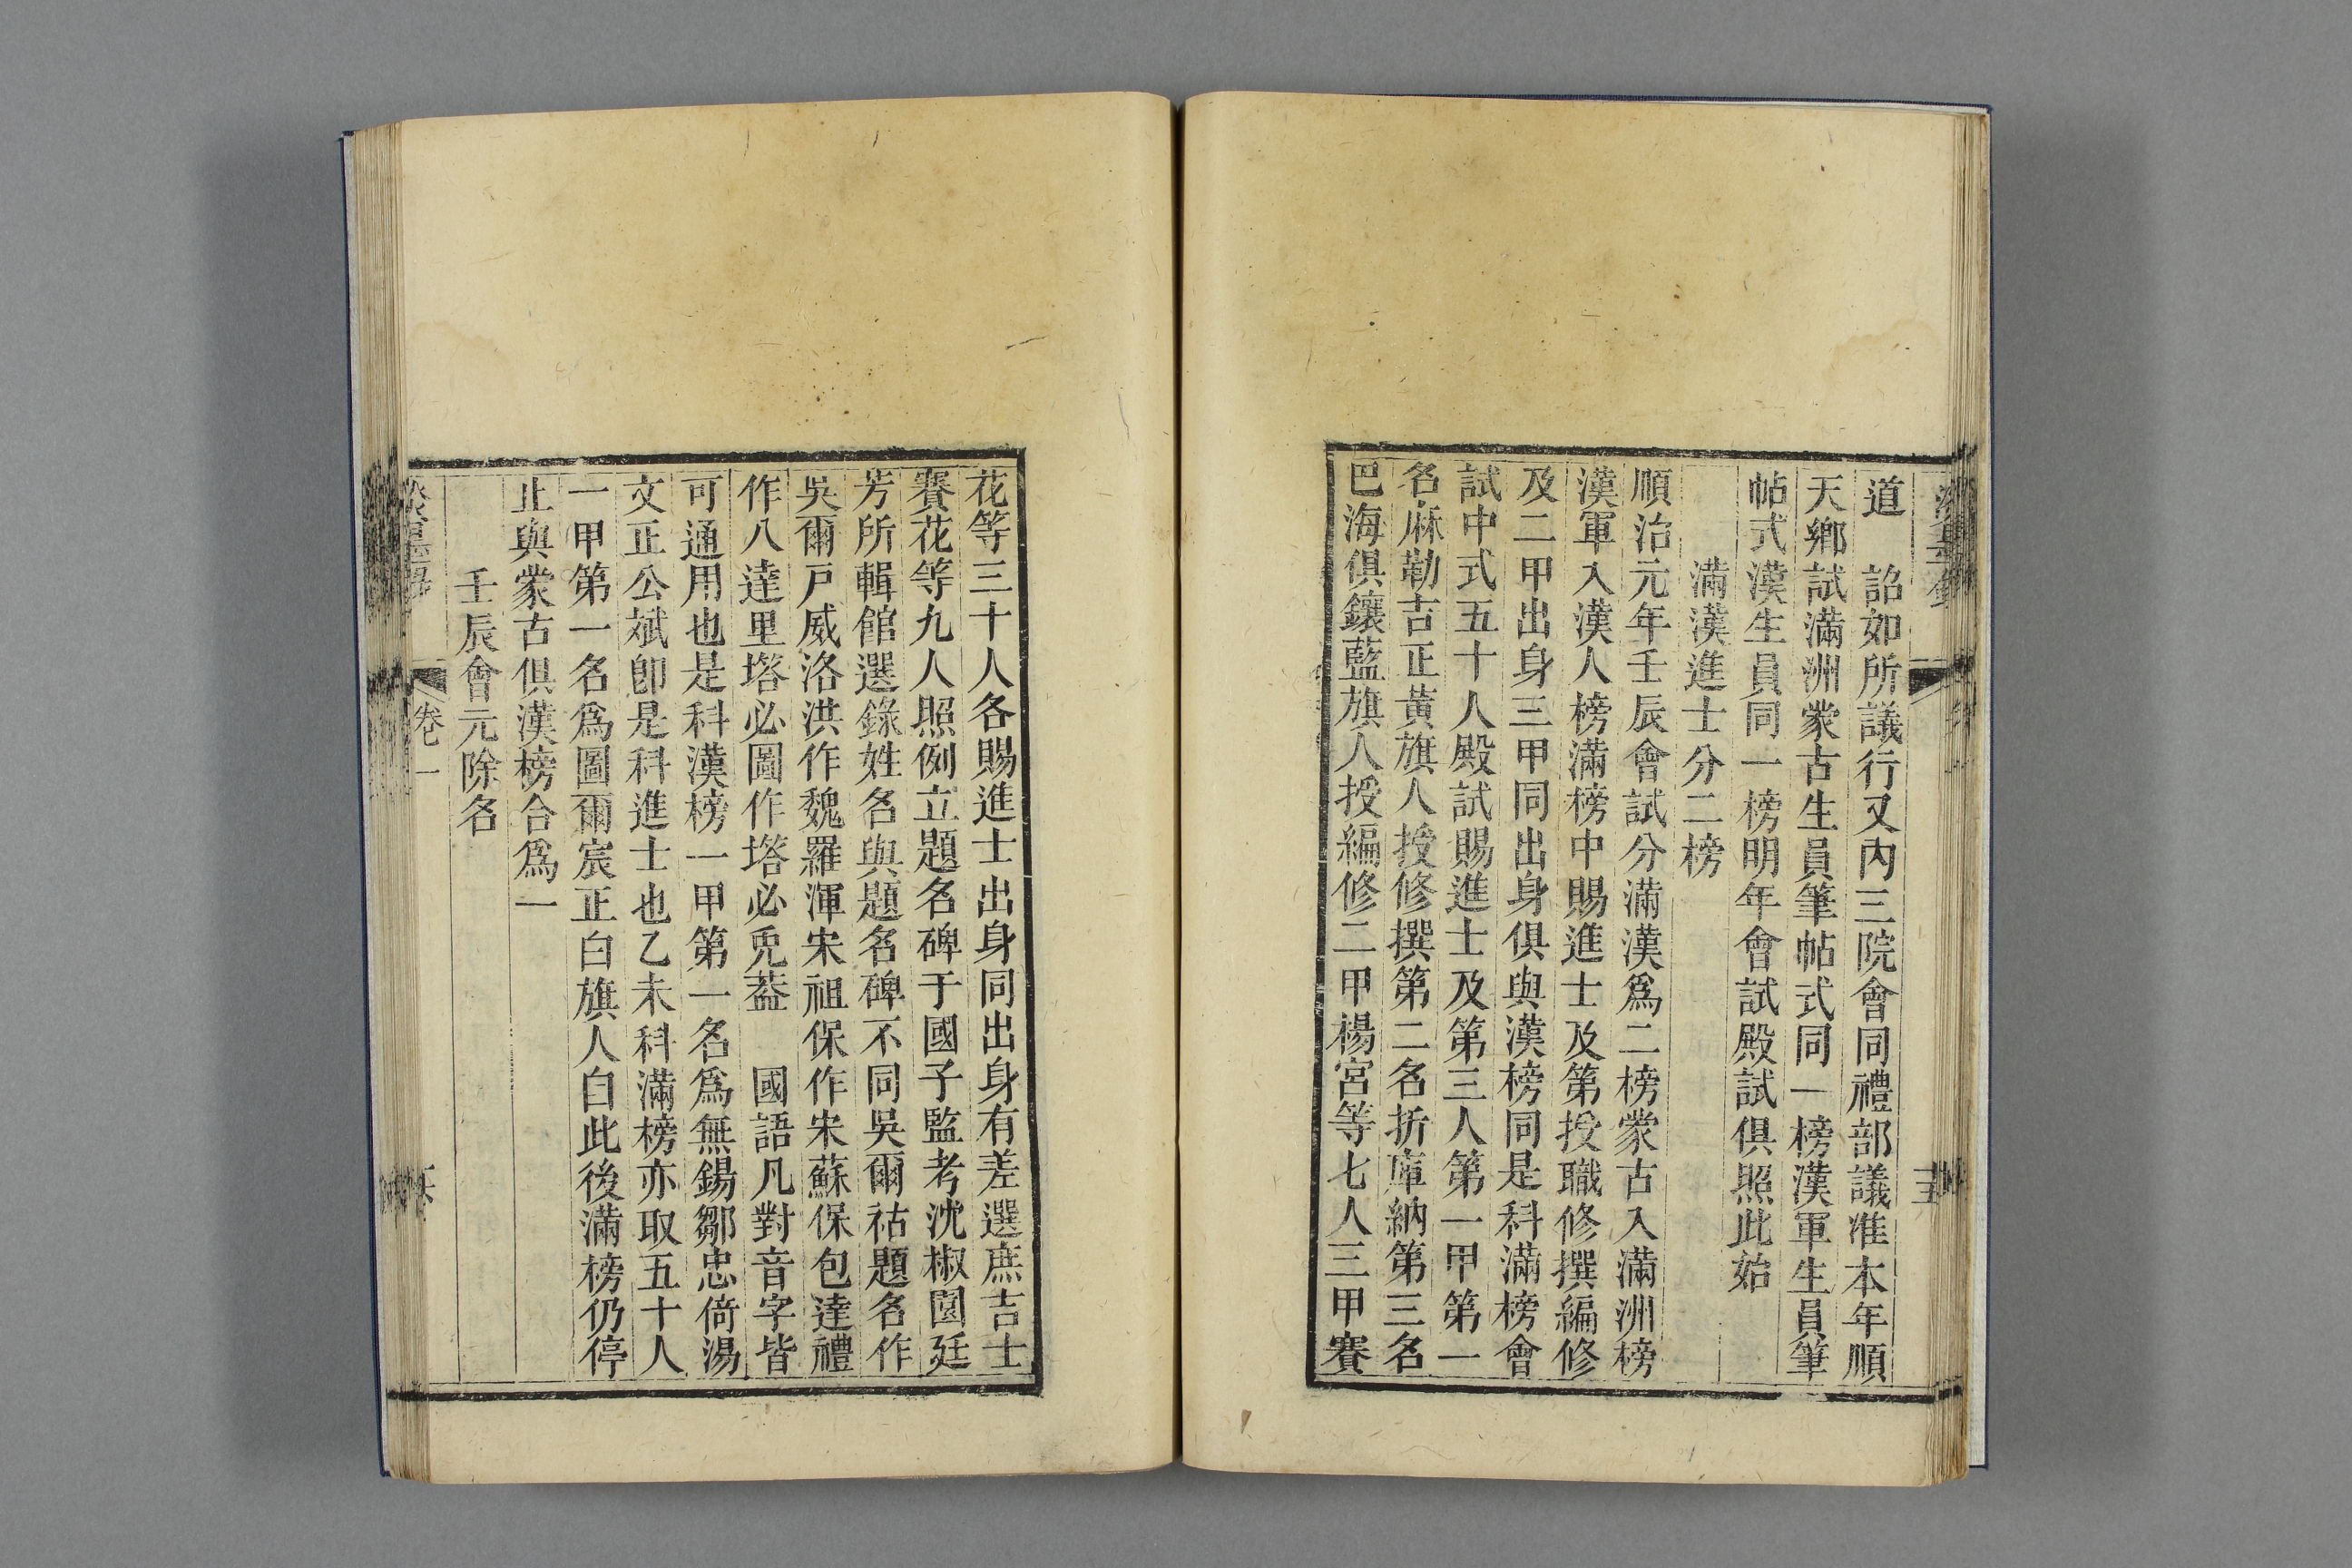 道　詔如所議行又內三院會同禮部議准本年順
天鄉試滿洲蒙古生員筆帖式同一榜漢軍生員筆
帖式漢生員同一榜明年會試殿試俱照此始
滿漢進士分二榜
順治元年壬辰會試分滿漢爲二榜蒙古入滿洲榜
漢軍入漢人榜滿榜中賜進士及第授職修撰編修
及二甲出身三甲同出身俱與漢榜同是科滿榜會
試中式五十人殿試賜進士及第三人第一甲第一
名麻勒吉正黃旗人授修撰第二名折庫納第三名
巴海俱鑲藍旗人授編修二甲楊宮等七人三甲賽
花等三十人各賜進士出身同出身有差選庶吉士
賽花等九人照例立題名碑于國子監考沈椒園廷
芳所輯館選錄姓名與題名碑不同吳爾祜題名作
吳爾戸威洛洪作魏羅渾宋祖保作宋蘇保包達禮
作八達里塔必圖作塔必兎葢　國語凡對音字皆
可通用也是科漢榜一甲第一名爲無錫鄒忠倚湯
文正公斌卽是科進士也乙未科滿榜亦取五十人
一甲第一名爲圖爾宸正白旗人自此後滿榜仍停
止與蒙古俱漢榜合爲一
壬辰會元除名
卷一